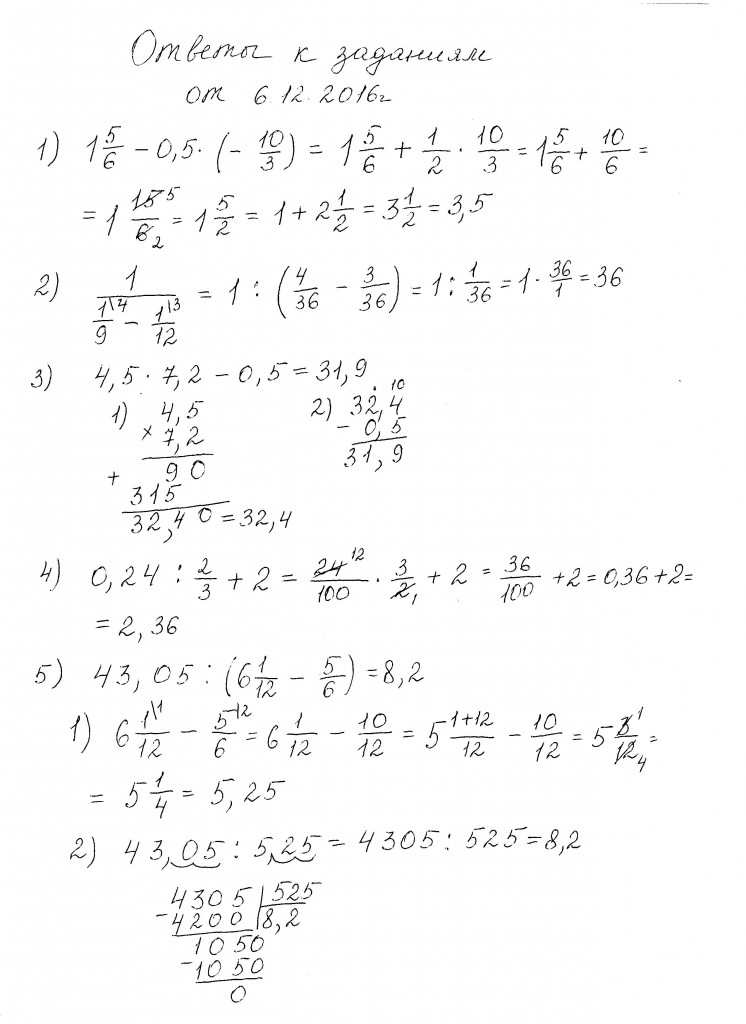 Ответы к заданиям
от 6.12.2016г
1) 1 5/6 − 0,5 · (− 10/3) = 1 5/6 + 1/2 · 10/3 = 1 5/6 + 10/6 =
= 1 15⁵/6₂ = 1 5/2 = 1 + 2 1/2 = 3 1/2 = 3,5
2) 1/(1\4/9 − 1\3/12) = 1 : (4/36 − 3/36) = 1 : 1/36 = 1 · 36/1 = 36
3) 4,5 · 7,2 − 0,5 = 31,9
1) 4,5 2) 32,4
× 7,2 − 0,5
+ 90 31,9
315
32,40 = 32,4
4) 0,24 : 2/3 + 2 = 24¹²/100 · 3/2₁ + 2 = 36/100 + 2 = 0,36 + 2 =
= 2,36
5) 43,05 : (6 1/12 − 5/6) = 8,2
1) 6 1\1/12 − 5\2/6 = 6 1/12 − 10/12 = 5 1+12/12 − 10/12 = 5 3¹/12₄ =
= 5 1/4 = 5,25
2) 43,05 : 5,25 = 4305 : 525 = 8,2
4305 | 525
− 4200 | 8,2
1050
− 1050
0